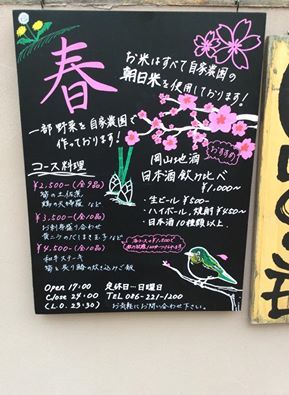 春
お米はすべて自家農園の
朝日米を使用しております!
一部野菜を自家農園で
作っております!
コース料理
¥2,500-(全9品)
筍の土佐煮
鶏の天ぷら など
¥3,500-(全10品)
お刺身盛り合わせ
など
¥4,500-(全10品)
和牛ステーキ
筍と長ひじきの炊き込みご飯
おすすめ
岡山地酒
日本酒飲みくらべ
¥1,000〜
・生ビール ¥500-
・ハイボール、焼酎 ¥450〜
・日本酒 10種類以上
各コース+¥1,500で
Open 17:00 定休日…日曜日
Close 24:00 TEL 086-221-1200
(L.O. 23:30) お気軽にお問い合わせ下さい。